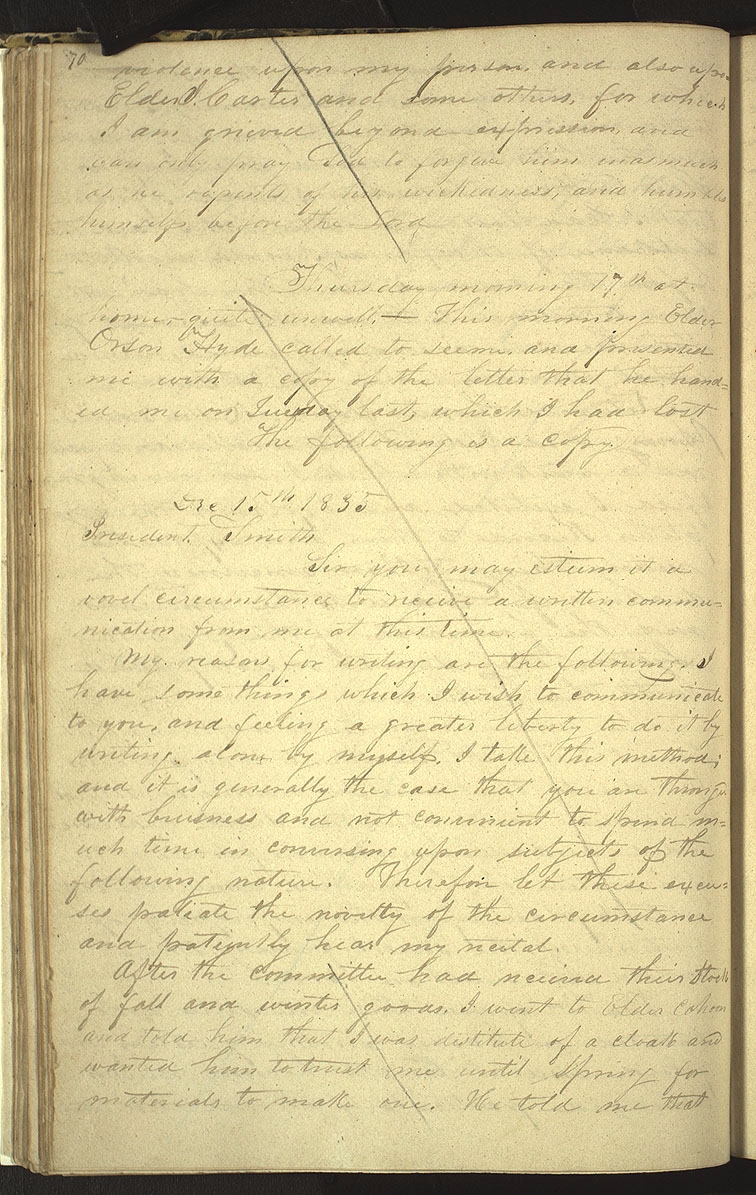 70
violence upon my person, and also upon
Elder J. Carter and some others, for which
I am grieved beyond expression, and
can only pray God to forgive him inasmuch
as he repents of his wickedness, and humbles
himself before the Lord
Thursday morning 17th at
home, quite unwell. — This morning Elder
Orson Hyde called to see me, and presented
me with a copy of the letter that he hand=
ed me on Tuesday last, which I had lost
The following is a copy
Dec 15th 1835
President Smith
Sir you may esteem it a
novel circumstance to receive a written commu=
nication from me at this time.
My reasons for writing are the following. I
have some things which I wish to communicate
to you, and feeling a greater liberty to do it by
writing alone by myself, I take this method;
and it is generally the case that you are throng
with buisness and not convenient to spend m=
uch time in conversing upon subjects of the
following nature. Therefore let these excu=
ses paliate the novelty of the circumstance
and patiently hear my recital.
After the committee had received their Stock
of fall and winter goods, I went to Elder Cahoon
and told him that I was destitute of a cloak and
wanted him to trust me until Spring for
materials to make one. He told me that